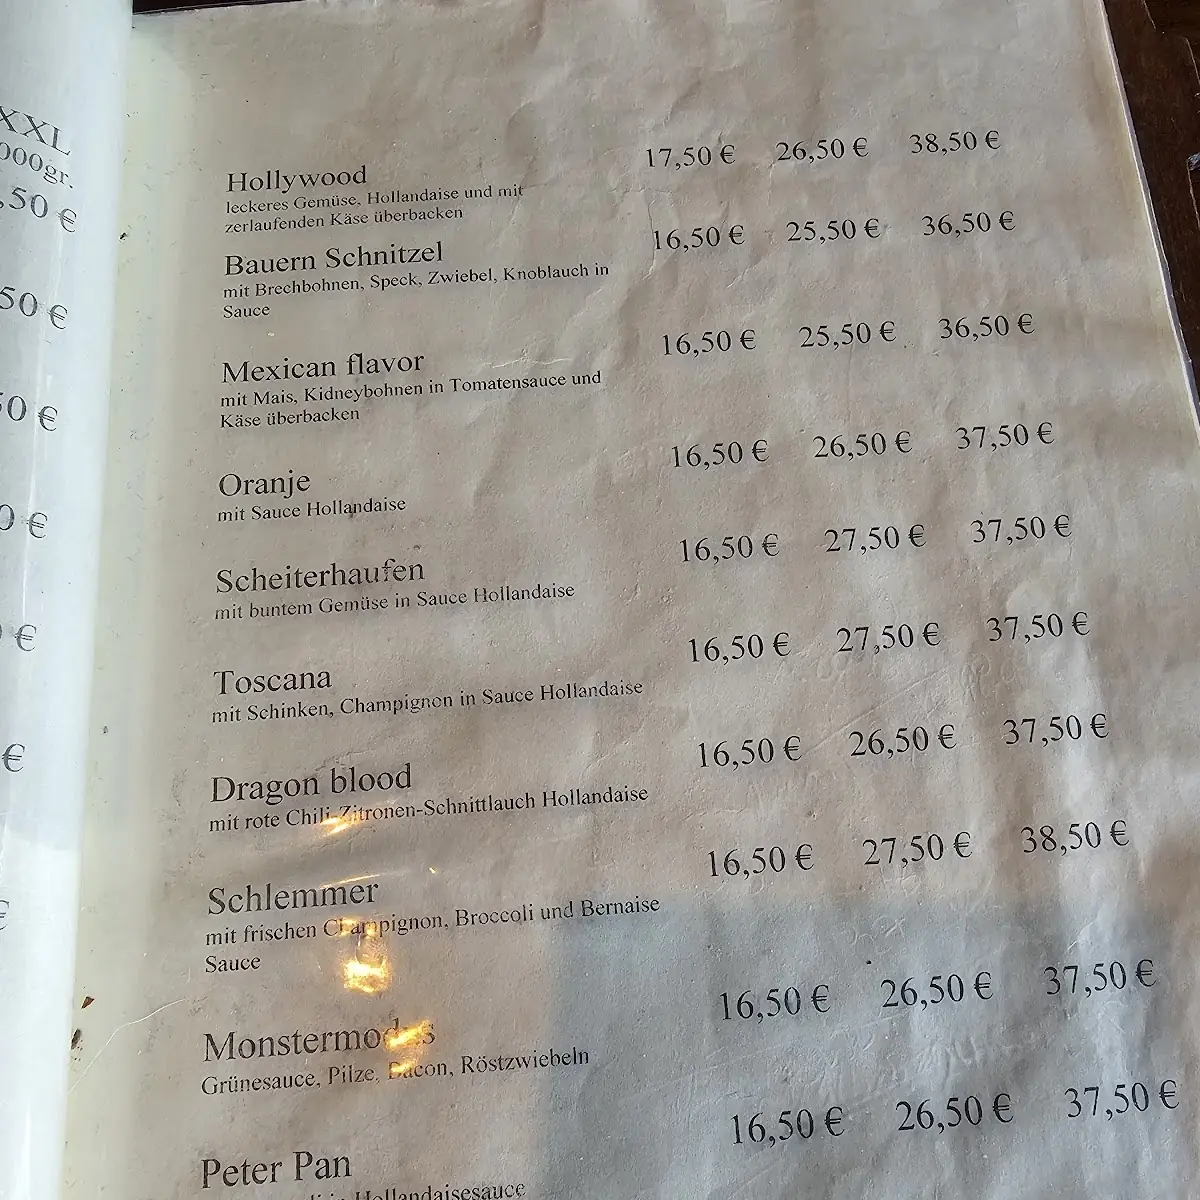 XXL
000gr.
,50 €
50 €
50 €
0 €
€
€
€
Hollywood 17,50 € 26,50 € 38,50 €
leckeres Gemüse, Hollandaise und mit
zerlaufenden Käse überbacken
Bauern Schnitzel 16,50 € 25,50 € 36,50 €
mit Brechbohnen, Speck, Zwiebel, Knoblauch in
Sauce
Mexican flavor 16,50 € 25,50 € 36,50 €
mit Mais, Kidneybohnen in Tomatensauce und
Käse überbacken
Oranje 16,50 € 26,50 € 37,50 €
mit Sauce Hollandaise
Scheiterhaufen 16,50 € 27,50 € 37,50 €
mit buntem Gemüse in Sauce Hollandaise
Toscana 16,50 € 27,50 € 37,50 €
mit Schinken, Champignon in Sauce Hollandaise
Dragon blood 16,50 € 26,50 € 37,50 €
mit rote Chili-Zitronen-Schnittlauch Hollandaise
Schlemmer 16,50 € 27,50 € 38,50 €
mit frischen Champignon, Broccoli und Bernaise
Sauce
16,50 € 26,50 € 37,50 €
Grünesauce, Pilze, Bacon, Röstzwiebeln
Peter Pan 16,50 € 26,50 € 37,50 €
Hollandaisesauce